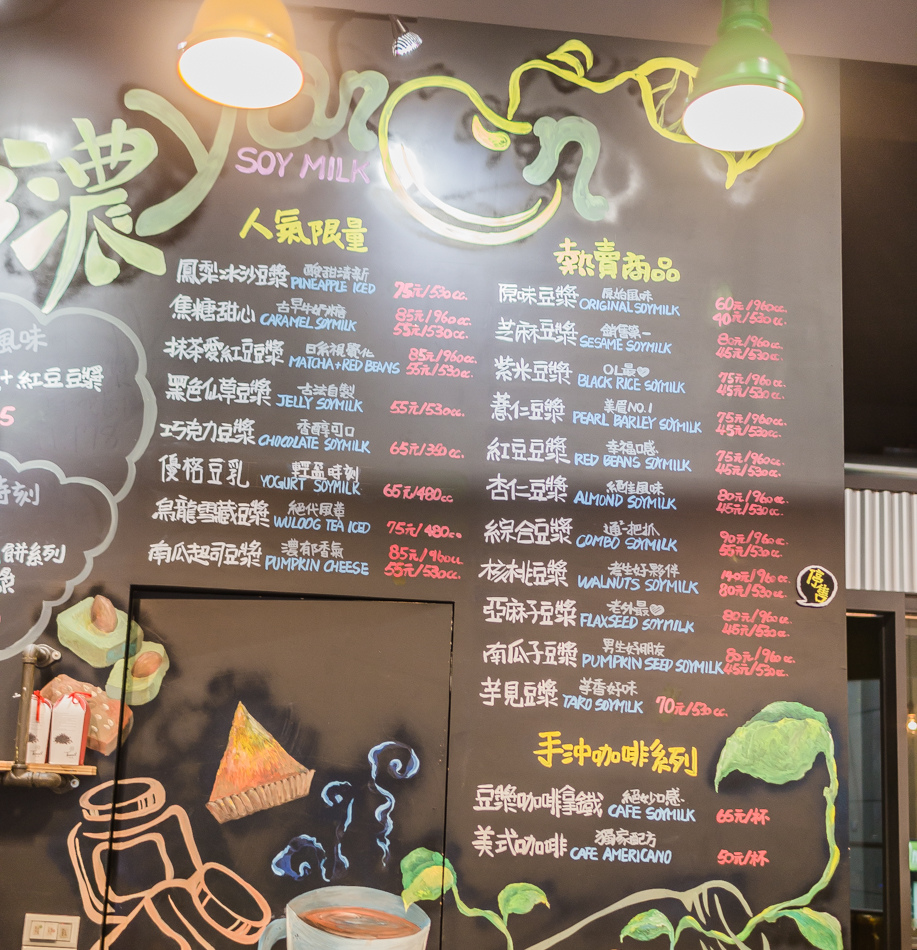 濃
Yan Cn
SOY MILK
人氣限量
鳳梨冰沙豆漿 酸甜清新 PINEAPPLE ICED 75元/530cc.
焦糖甜心 古早牛奶糖 CARAMEL SOYMILK 85元/960cc. 55元/530cc.
抹茶愛紅豆豆漿 日系視覺化 MATCHA+RED BEANS 85元/960cc. 55元/530cc.
黑色仙草豆漿 古法自製 JELLY SOYMILK 55元/530cc.
巧克力豆漿 香醇可口 CHOCOLATE SOYMILK 65元/350cc.
優格豆乳 輕盈時刻 YOGURT SOYMILK 65元/480cc.
烏龍雪藏豆漿 絕代風華 WULOOG TEA ICED 75元/480cc.
南瓜起司豆漿 濃郁香氣 PUMPKIN CHEESE 85元/960cc. 55元/530cc.
熱賣商品
原味豆漿 原始風味 ORIGINAL SOYMILK 60元/960cc. 40元/530cc.
芝麻豆漿 銷售第一 SESAME SOYMILK 80元/960cc. 45元/530cc.
紫米豆漿 OL最♡ BLACK RICE SOYMILK 75元/960cc. 45元/530cc.
薏仁豆漿 美眉NO.1 PEARL BARLEY SOYMILK 75元/960cc. 45元/530cc.
紅豆豆漿 幸福口感 RED BEANS SOYMILK 75元/960cc. 45元/530cc.
杏仁豆漿 絕佳風味 ALMOND SOYMILK 80元/960cc. 45元/530cc.
綜合豆漿 通一把抓 COMBO SOYMILK 90元/960cc. 55元/530cc.
核桃豆漿 養生好夥伴 WALNUTS SOYMILK 140元/960cc. 80元/530cc. 停售
亞麻子豆漿 老外最♡ FLAXSEED SOYMILK 80元/960cc. 45元/530cc.
南瓜子豆漿 男生好朋友 PUMPKIN SEED SOYMILK 80元/960cc. 45元/530cc.
芋見豆漿 芋香好味 TARO SOYMILK 70元/530cc.
手沖咖啡系列
豆漿咖啡拿鐵 絕妙口感 CAFE SOYMILK 65元/杯
美式咖啡 獨家配方 CAFE AMERICANO 50元/杯
風味
+紅豆豆漿
5
時刻
餅系列